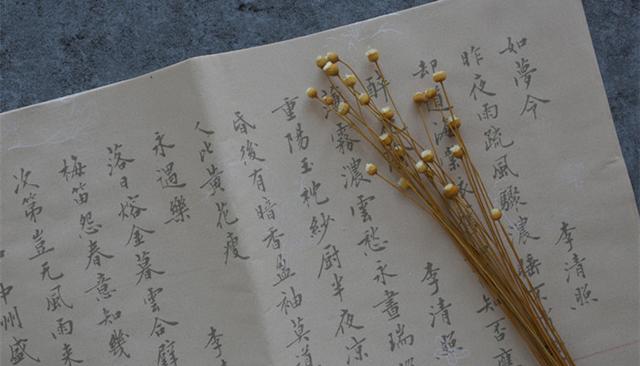 如夢令
李清照
昨夜雨疏風驟濃睡不
却道海棠依
知否應
醉
李清照
薄霧濃雲愁永晝瑞
重陽玉枕紗厨半夜凉
昏後有暗香盈袖莫道
人比黃花瘦
李
永遇樂
落日熔金暮雲合璧
梅笛怨春意知幾
次第豈无風雨来
中州盛